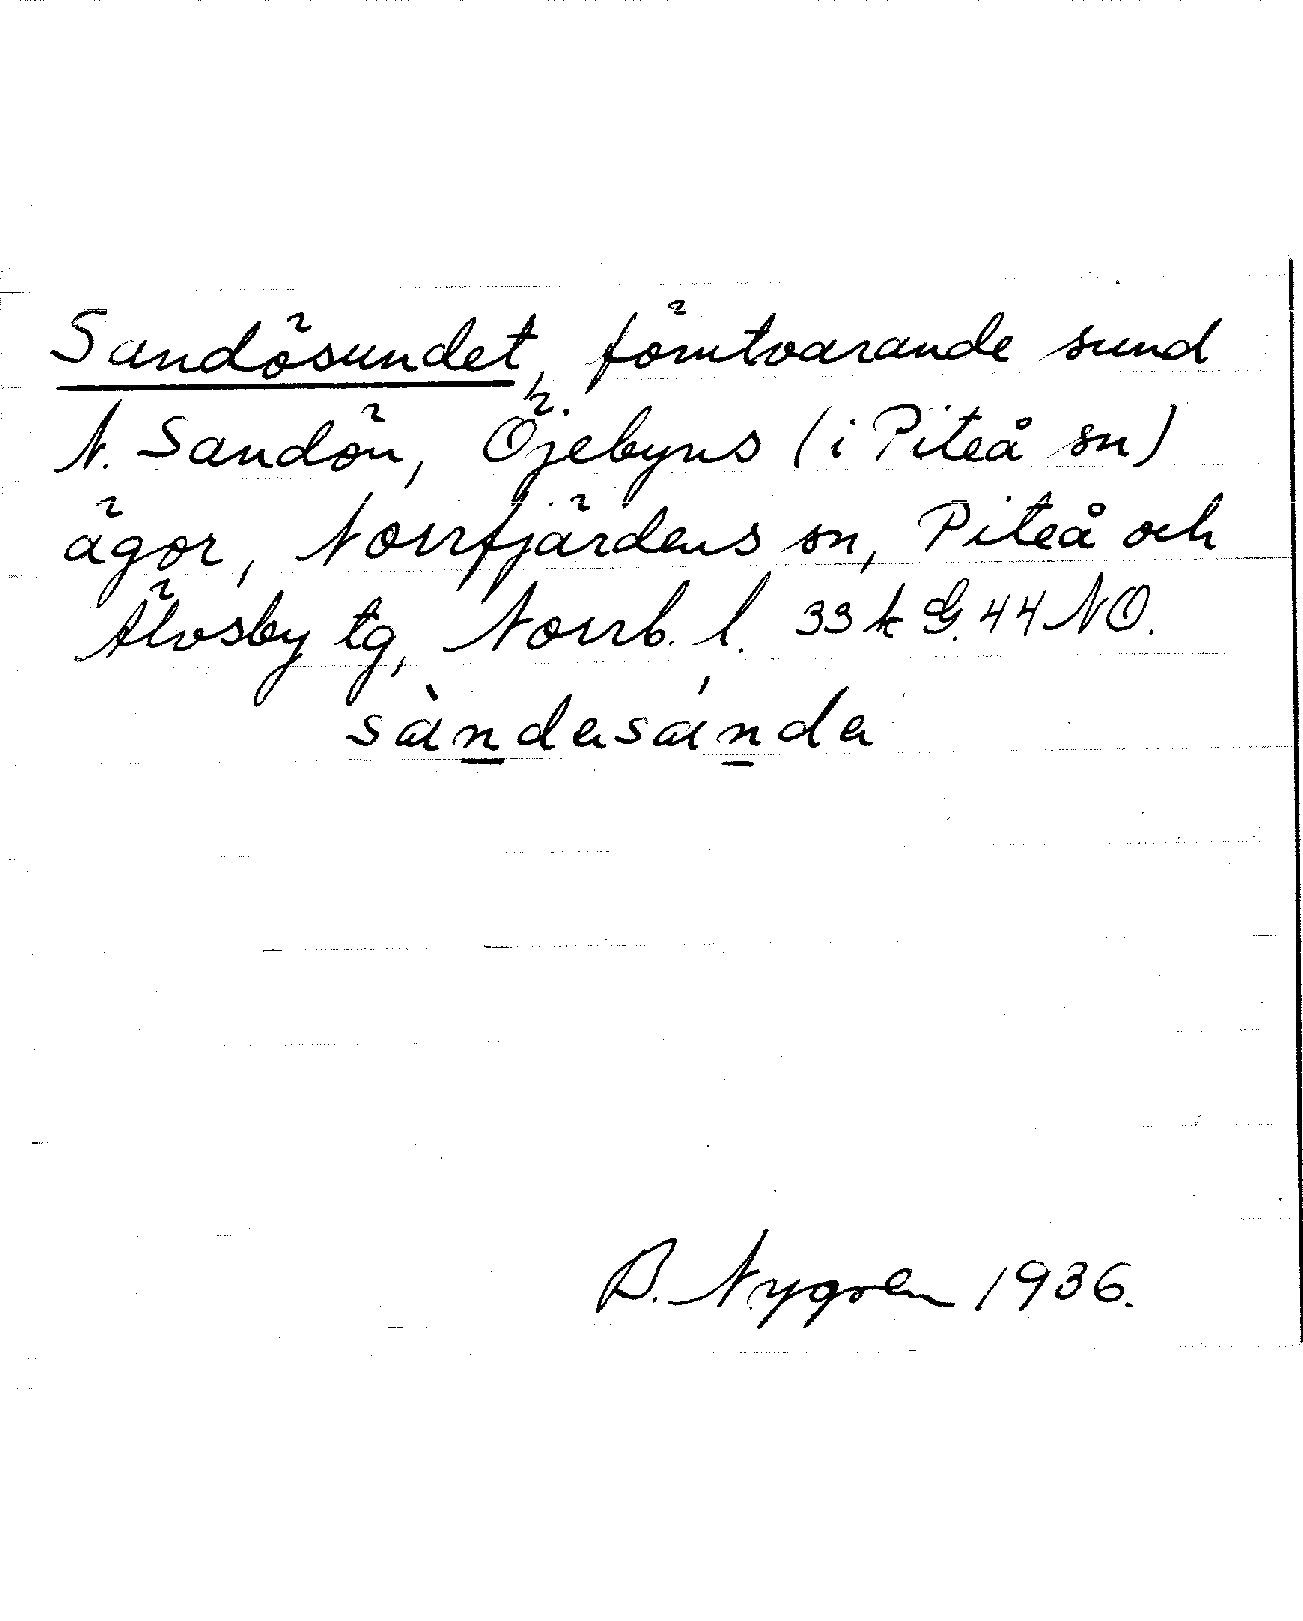 Sandösundet, förutvarande sund
N. Sandön, Öjebyns (i Piteå sn)
ägor, Norrfjärdens sn, Piteå och
Älvsby tg, Norrb. l. 33 k G. 44 NO.
sàndasánda
B. Nygren 1936.